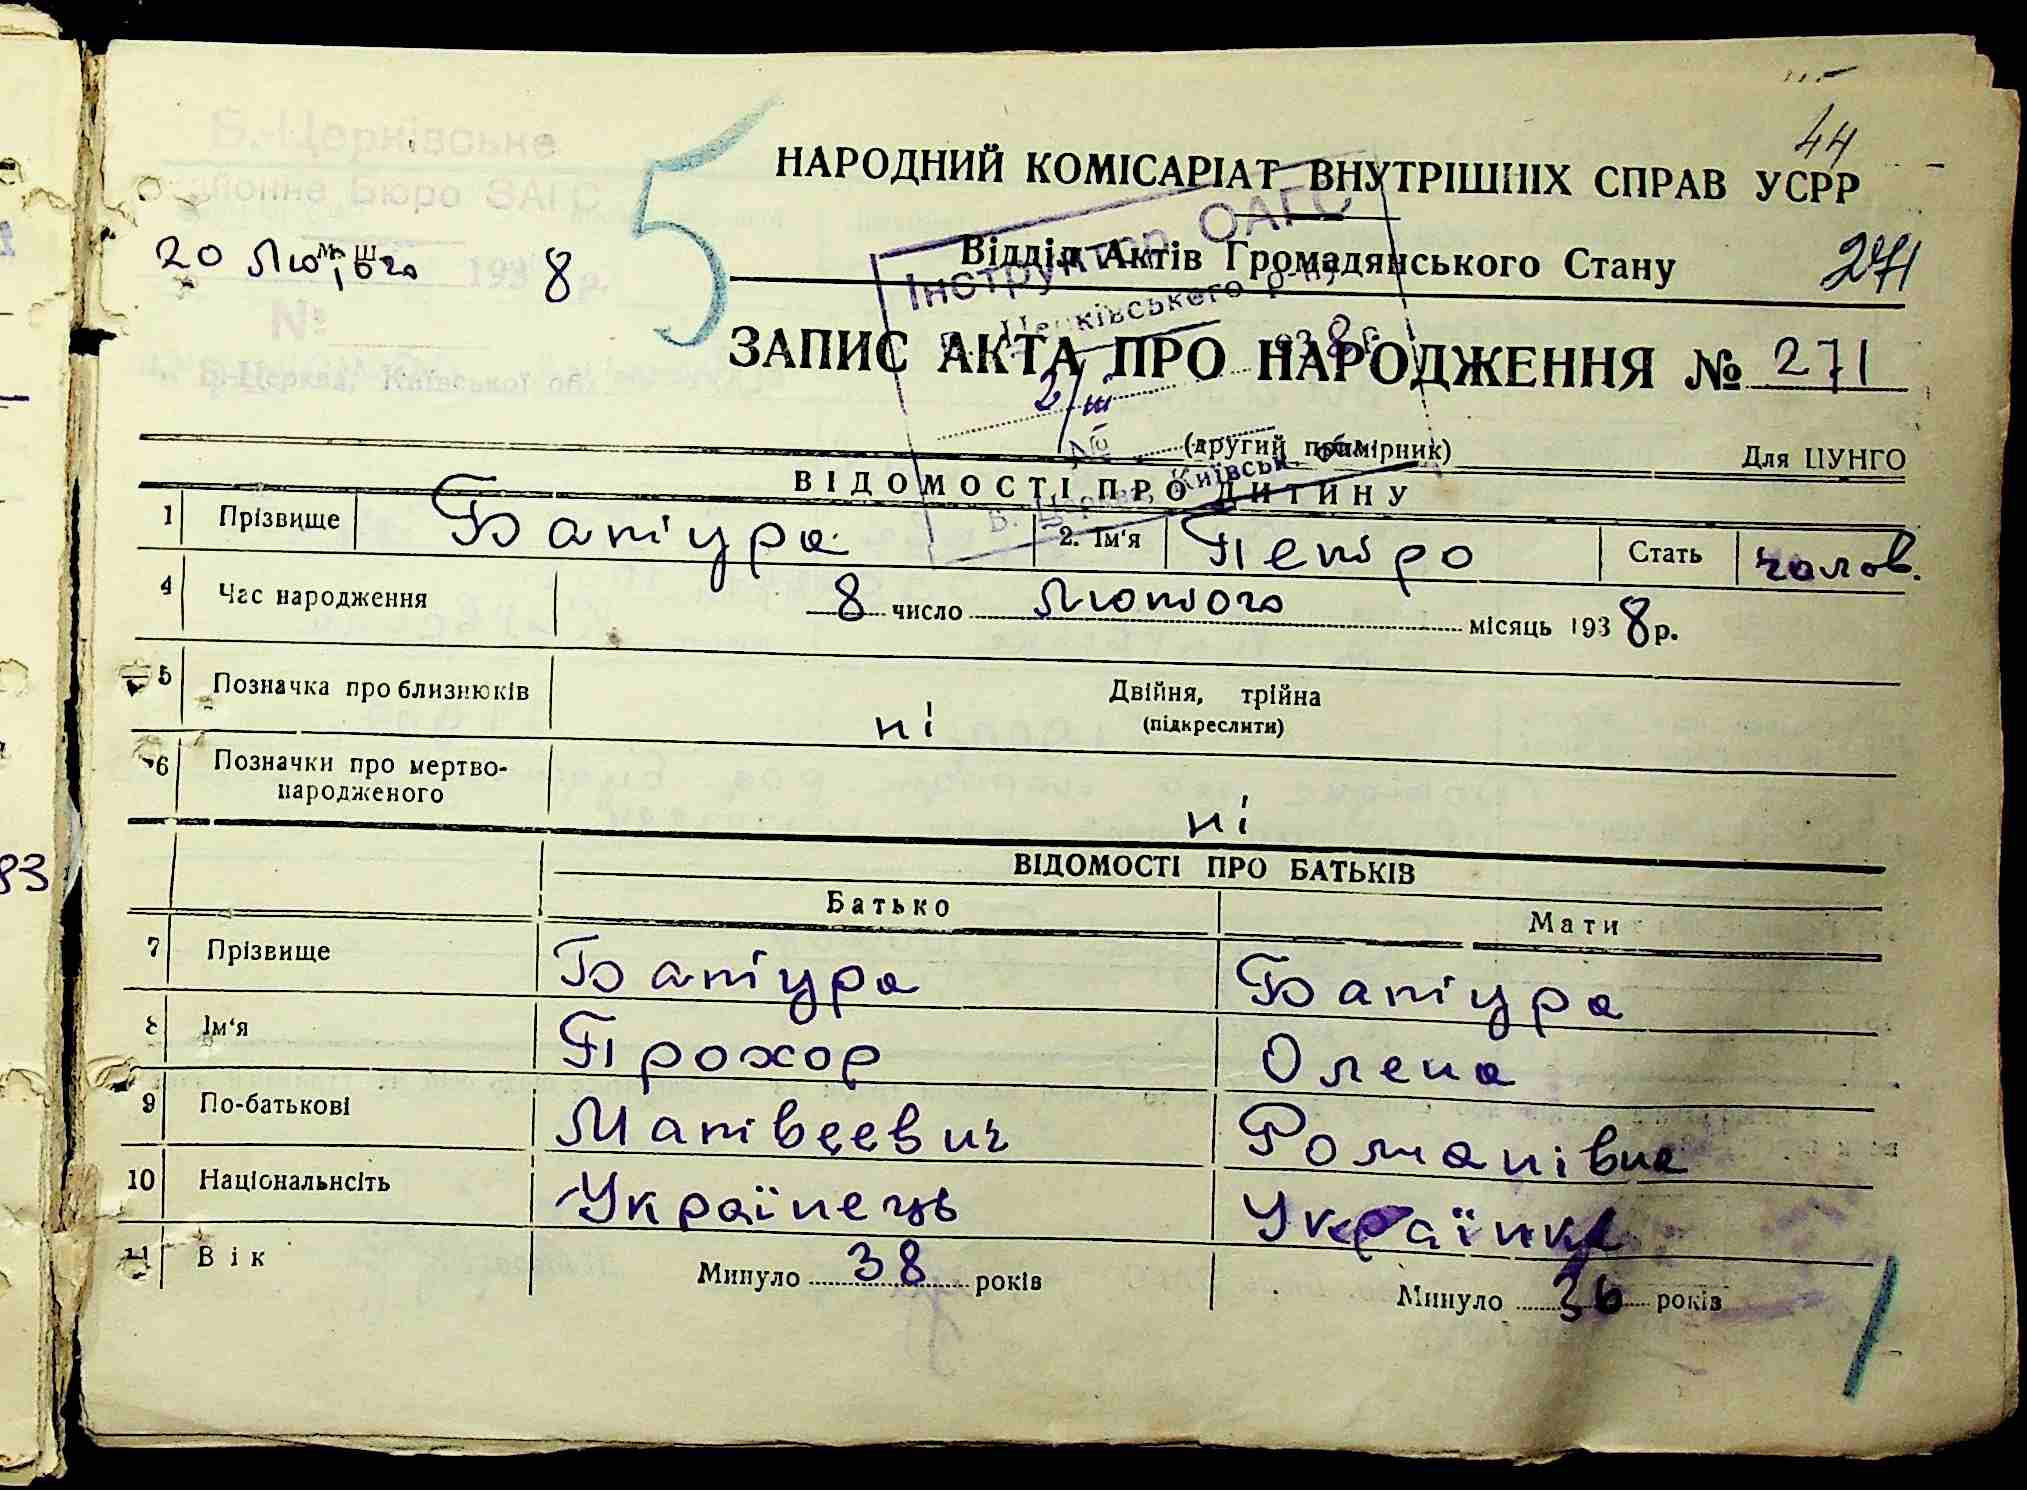 44
НАРОДНИЙ КОМІСАРІАТ ВНУТРІШНІХ СПРАВ УСРР
Б.-Церківське
районне Бюро ЗАГС
20 Лютого 1938 р.
№
Б-Церква, Київської об.
5
Відділ Актів Громадянського Стану
271
Інструктор ОАГС
Церківського р-ну
2/ІІІ 1938 р.
№
Б. Церква, Київськ. обл.
ЗАПИС АКТА ПРО НАРОДЖЕННЯ № 271
(другий примірник) Для ЦУНГО
ВІДОМОСТІ ПРО ДИТИНУ
1 Прізвище Батіура 2. Ім'я Петро Стать чолов.
4 Час народження 8 число Лютого місяць 1938 р.
5 Позначка про близнюків ні Двійня, трійна
(підкреслити)
6 Позначки про мертво-
народженого ні
ВІДОМОСТІ ПРО БАТЬКІВ
Батько Мати
7 Прізвище Батіура Батіура
8 Ім'я Прохор Олена
9 По-батькові Матвеевич Романівна
10 Національнсіть Українець Українка
11 Вік Минуло 38 років Минуло 36 років
83